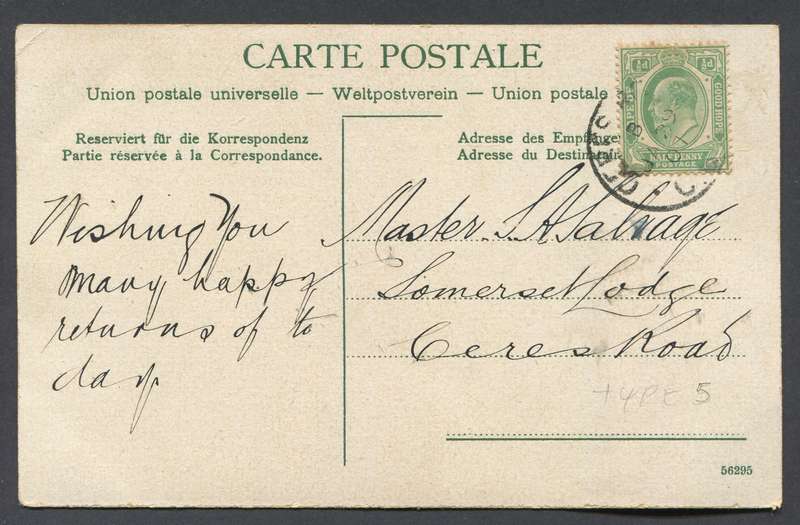 CARTE POSTALE
Union postale universelle — Weltpostverein — Union postale
Reserviert für die Korrespondenz
Partie réservée à la Correspondance.
Adresse des Empfänge
Adresse du Destinatair
½d ½d
GOOD HOPE
HALFPENNY
POSTAGE
Wishing You
many happy
returns of to
day
Master. S. A. Salvage
Somerset Lodge
Ceres Road
TYPE 5
56295